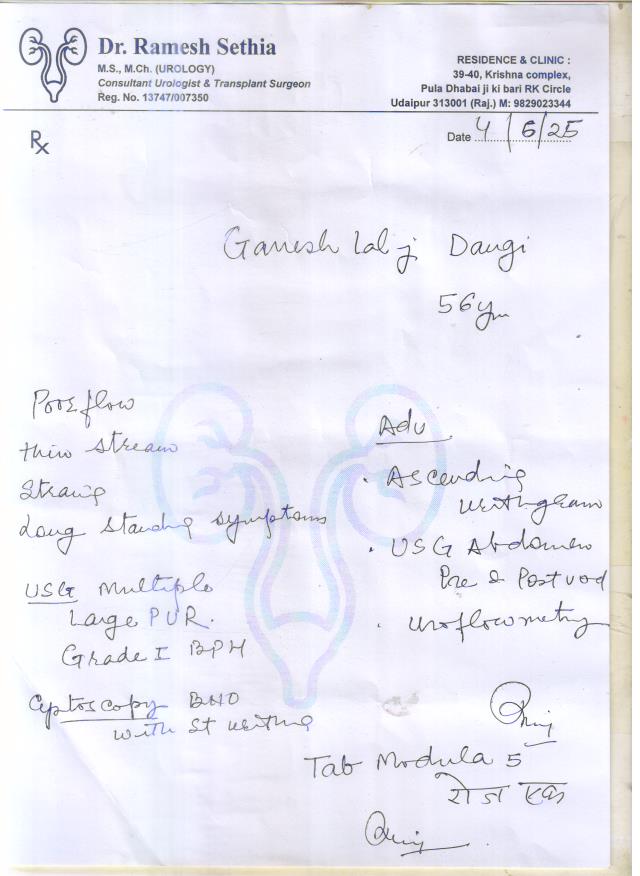 Dr. Ramesh Sethia
M.S., M.Ch. (UROLOGY)
Consultant Urologist & Transplant Surgeon
Reg. No. 13747/007350
RESIDENCE & CLINIC :
39-40, Krishna complex,
Pula Dhabai ji ki bari RK Circle
Udaipur 313001 (Raj.) M: 9829023344
Date 4/6/25
Rx
Ganesh Lal j Dangi
56 ym
Poor flow
thin stream
Straing
Long standing symptoms
USG multiple
Large PUR.
Grade I BPH
Cyptoscopy BNO
with St urithra
Adv
. Ascending
urithgram
. USG Abdomen
Pre & Post void
. Uroflowmetry
Tab Modula 5
रोज एक